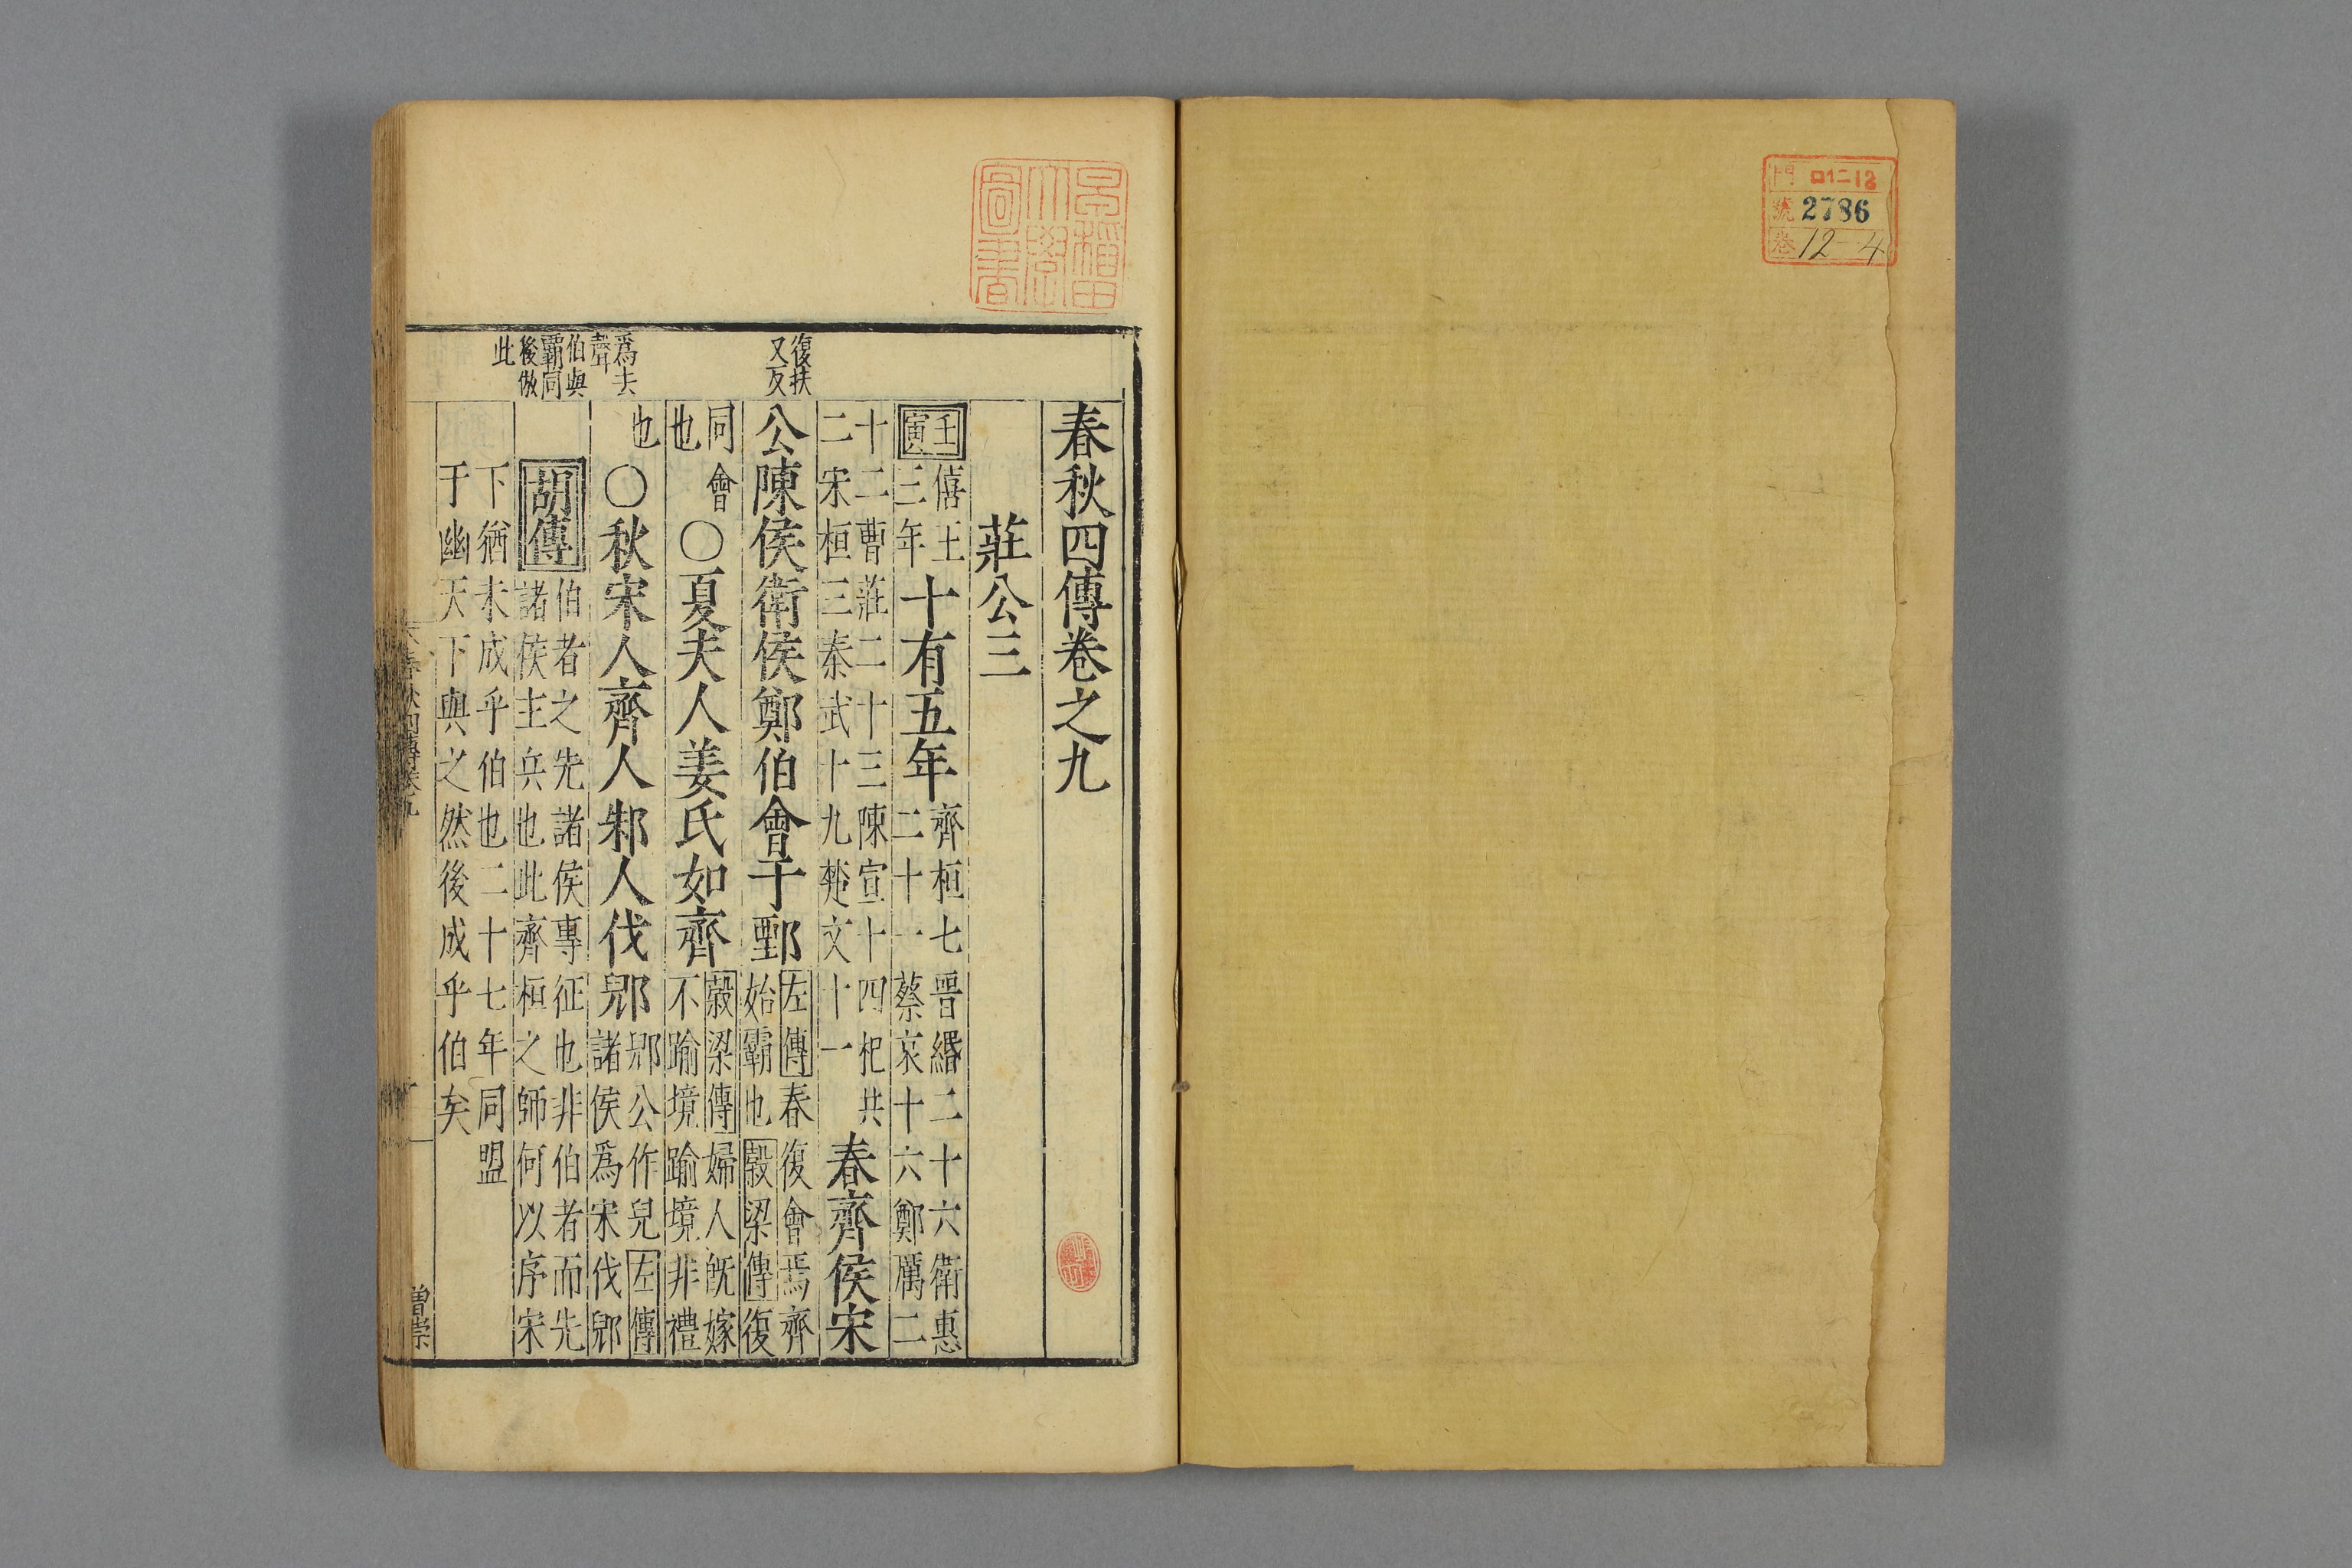 門 ロ12 12
號 2786
卷 12-4
早稲田大學圖書
復扶
又反
爲去
聲
伯與
霸同
後倣
此
春秋四傳卷之九
莊公三
壬寅
僖王
三年
十有五年
齊桓七晉緡二十六衛惠
二十一蔡哀十六鄭厲二
十二曹莊二十三陳宣十四杞共
二宋桓三秦武十九楚文十一
春齊侯宋
公陳侯衛侯鄭伯會于鄄
左傳春復會焉齊
始霸也穀梁傳復
同會
也
○夏夫人姜氏如齊
穀梁傳婦人旣嫁
不踰境踰境非禮
也
○秋宋人齊人邾人伐郳
郳公作兒左傳
諸侯爲宋伐郳
胡傳
伯者之先諸侯專征也非伯者而先
諸侯主兵也此齊桓之師何以序宋
下猶未成乎伯也二十七年同盟
于幽天下與之然後成乎伯矣
春秋四傳卷九
一
曾崇